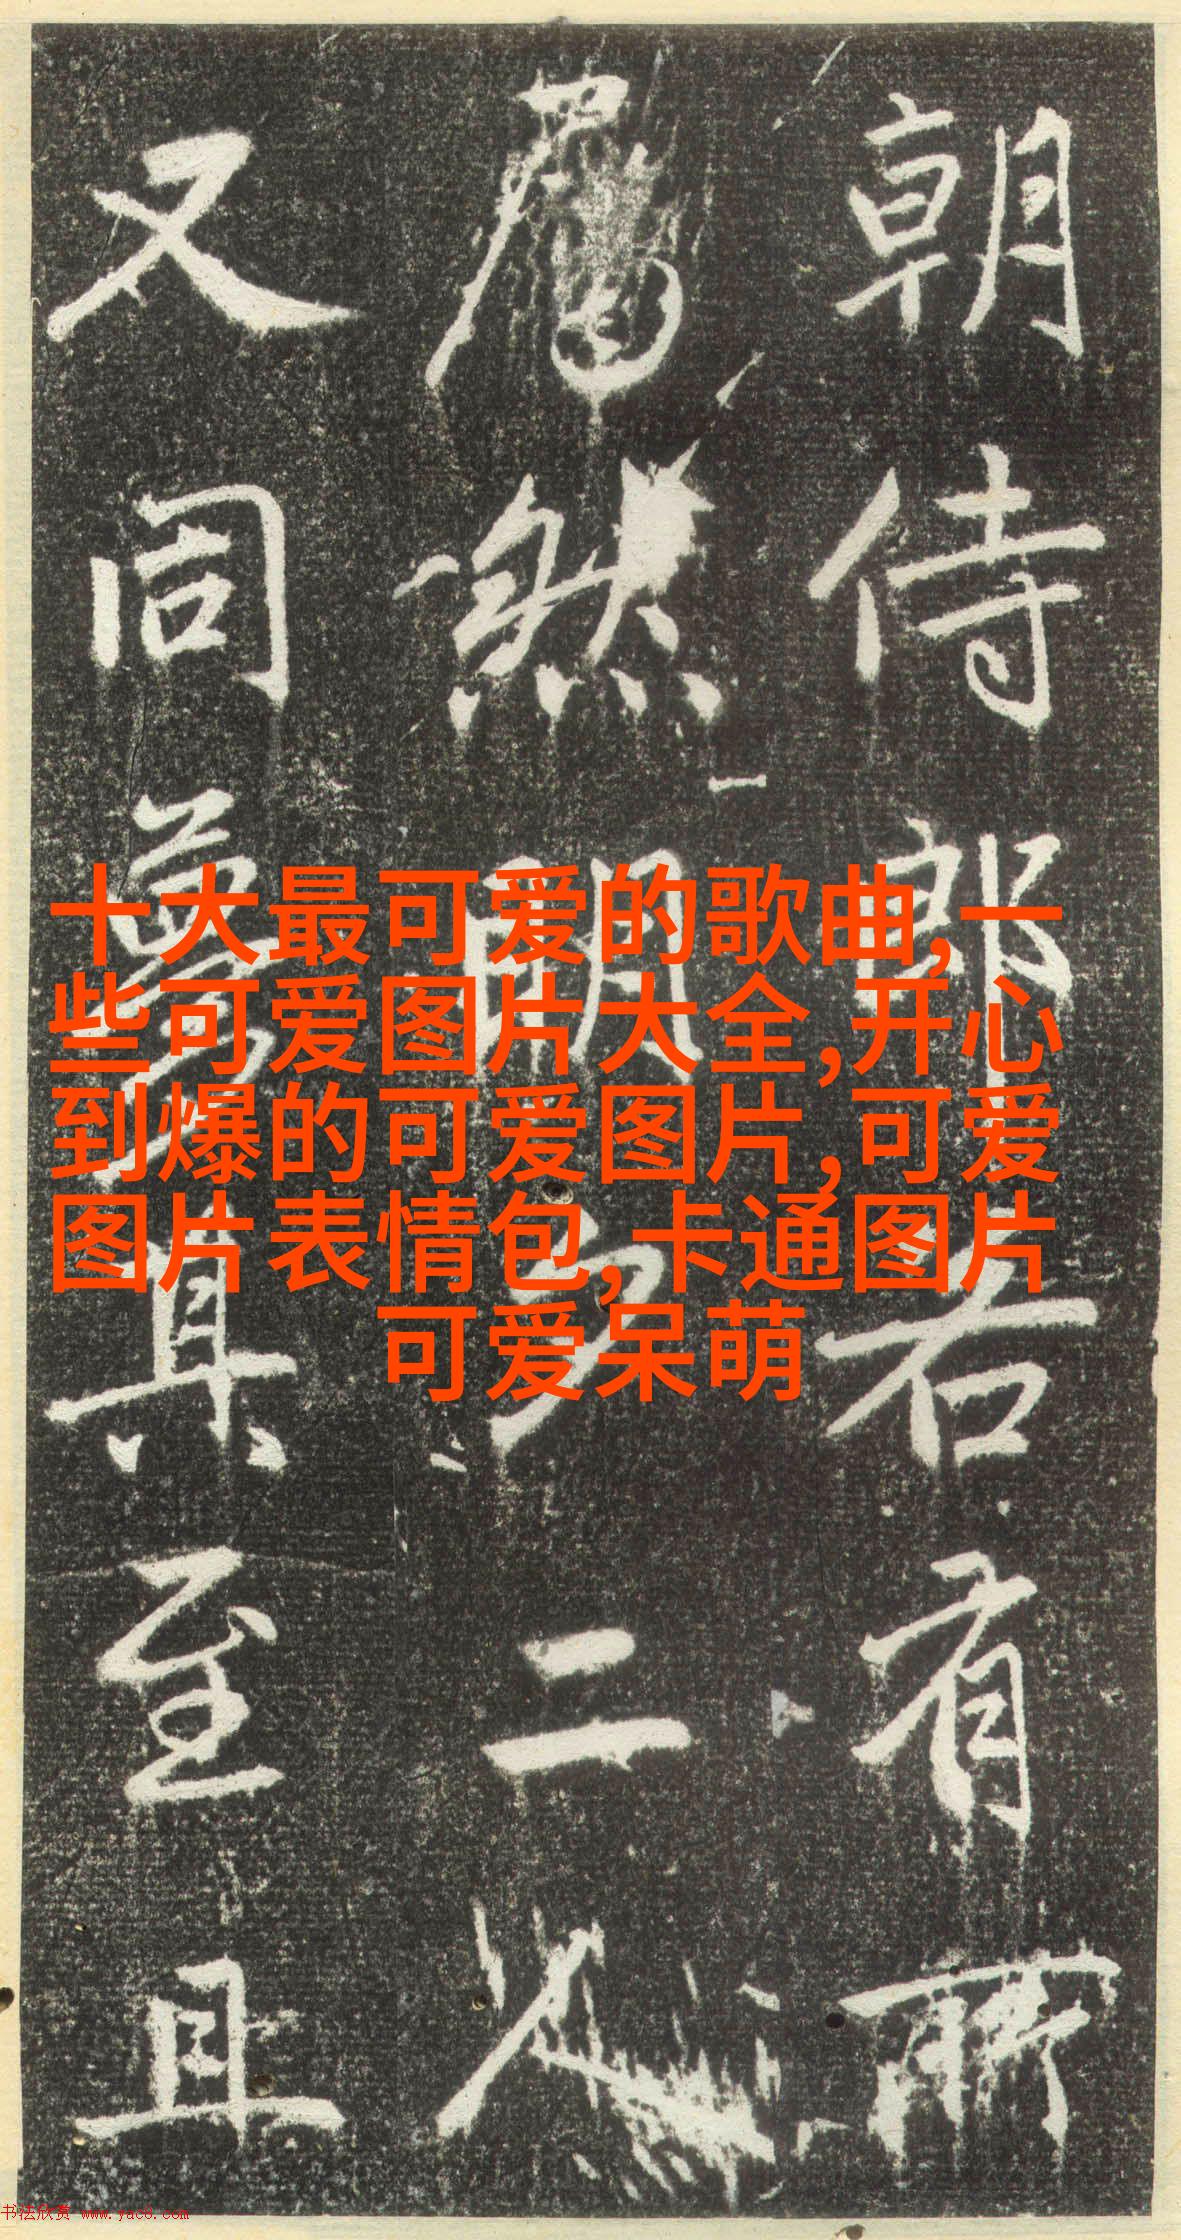 朝侍郎有所
然明二人
又同具至且
十大最可爱的歌曲,一
些可爱图片大全,开心
到爆的可爱图片,可爱
图片表情包,卡通图片
可爱呆萌
书法欣赏 www.yac8.com